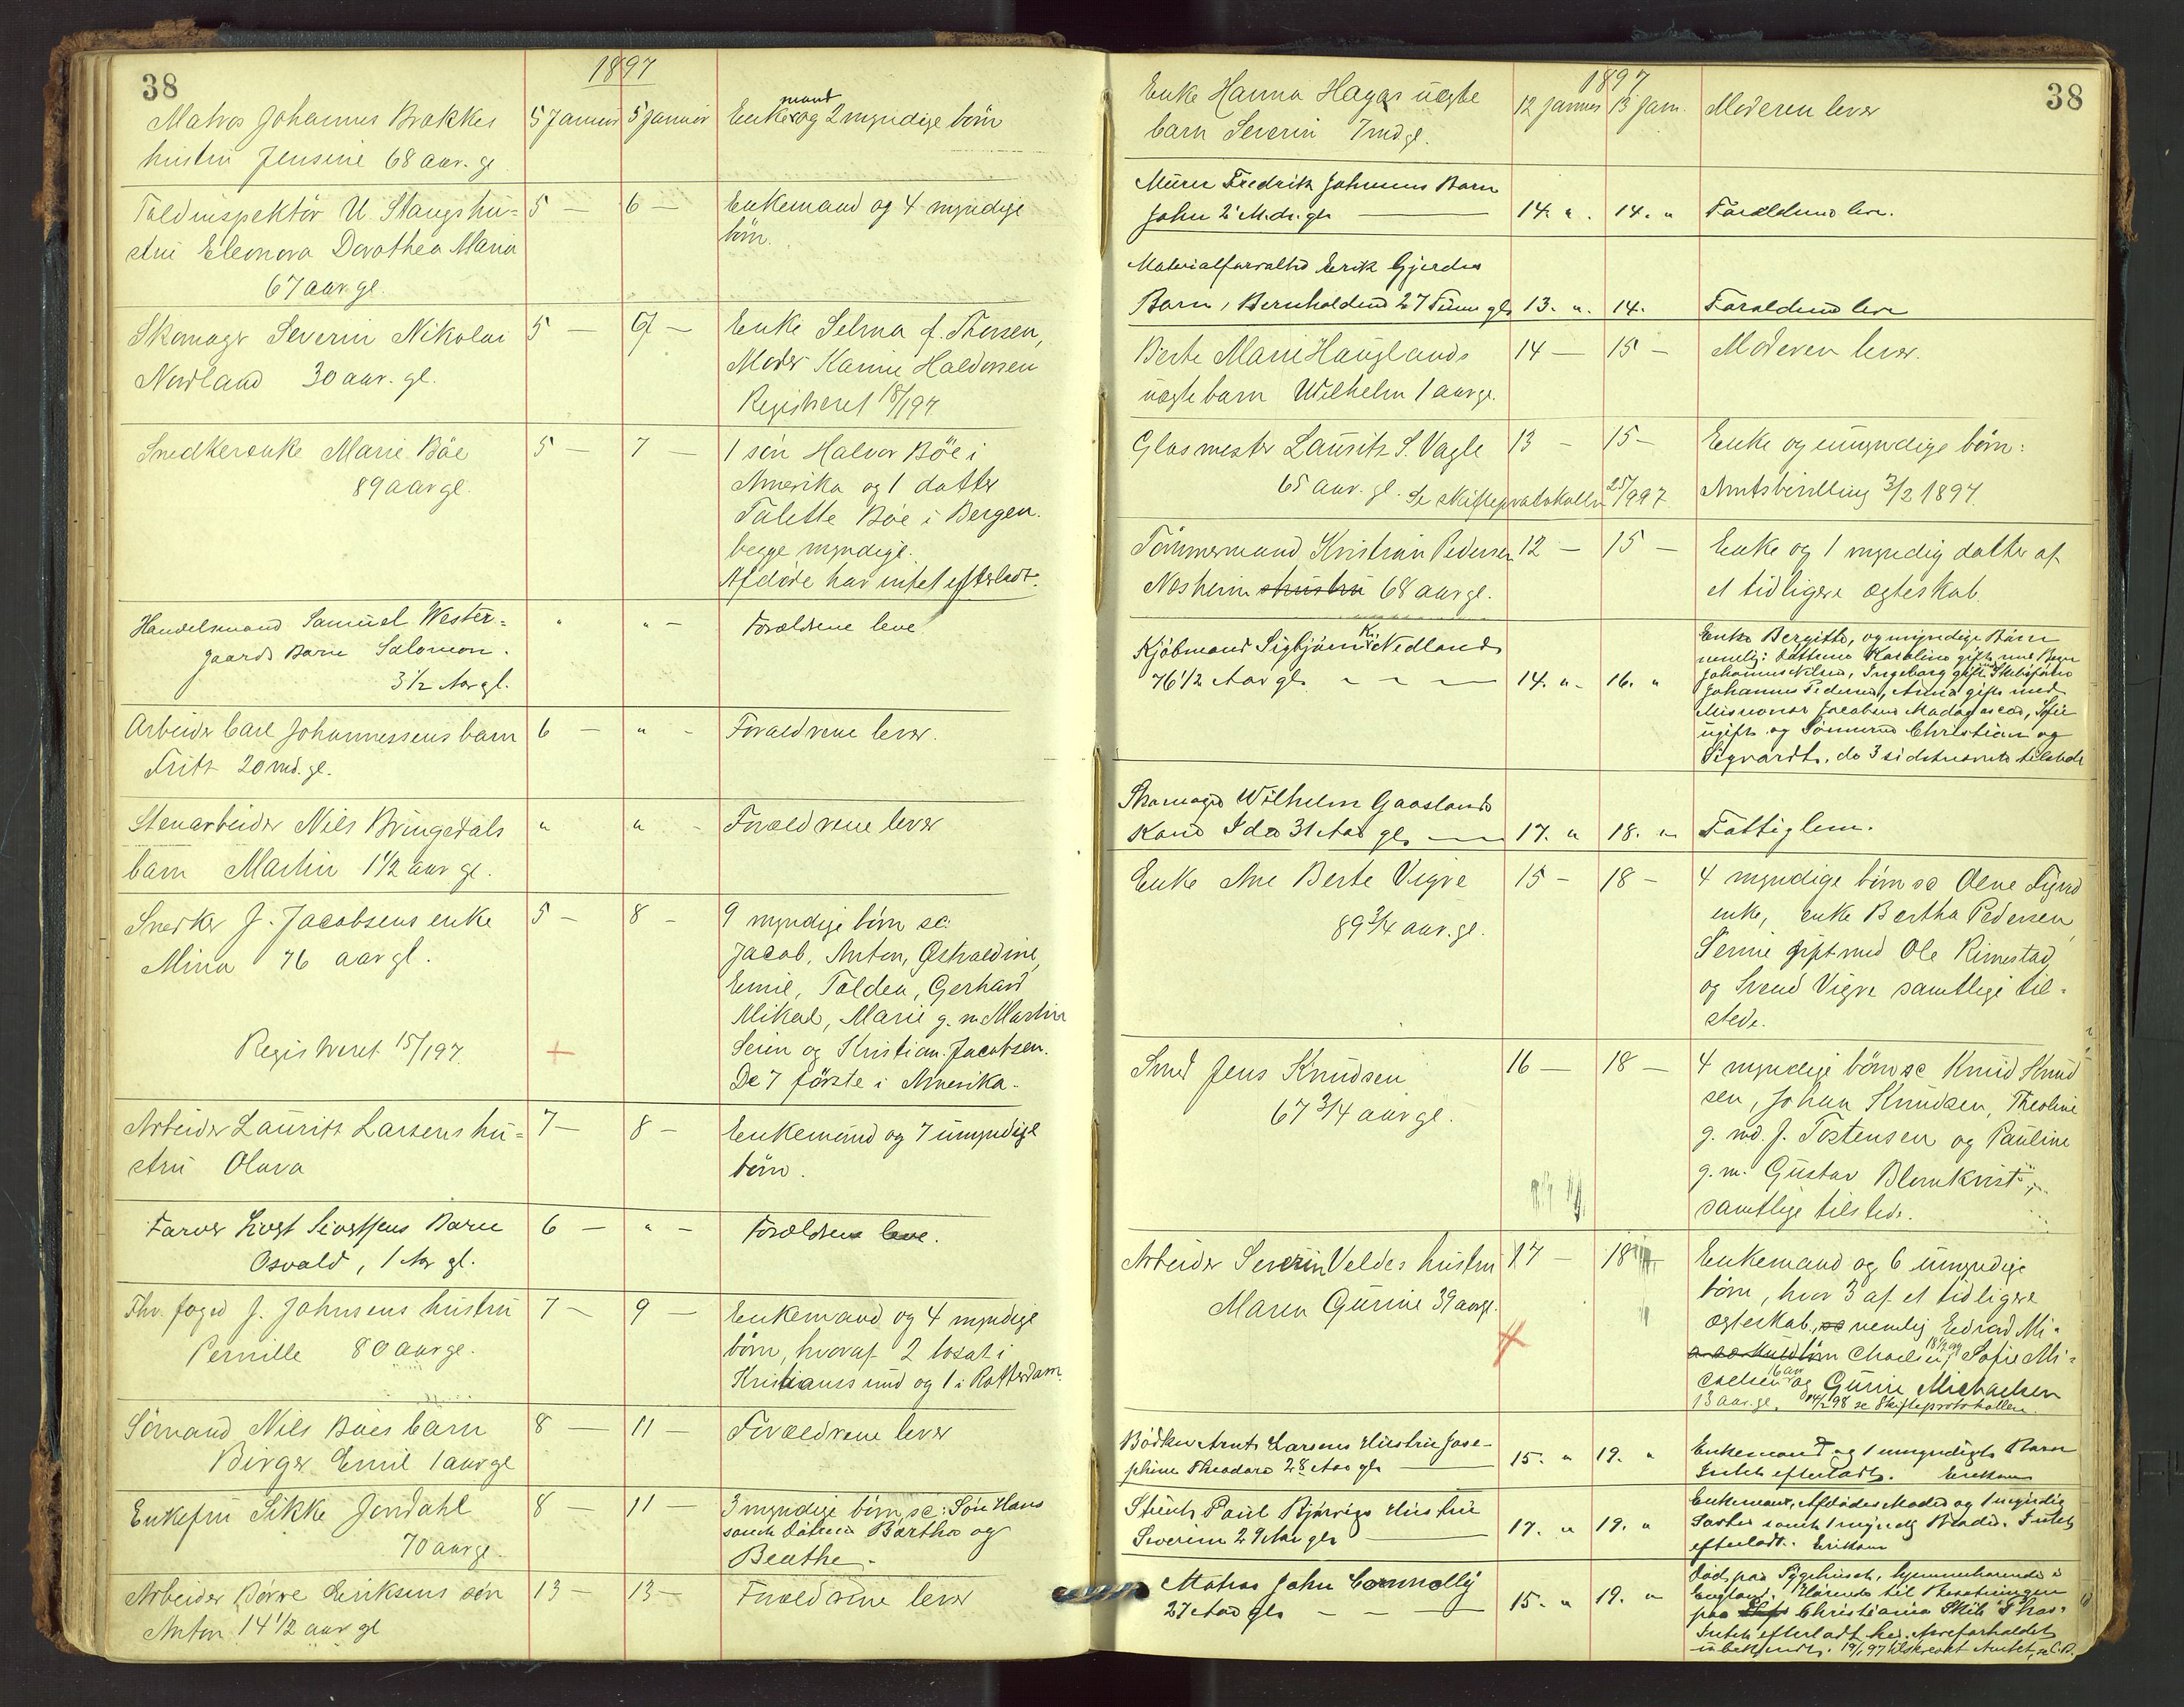 38
1897
Matros Johannes Brakkes
hustru Jensine 68 aar. gl
5 Januar
5 Januar
Enkemand og 2 myndige börn
Toldinspektör U Stangs hu=
stru Eleonora Dorothea Maria
67 aar. gl.
5 —
6 —
Enkemand og 4 myndige
börn.
Skomagr Severin Nikolai
Nordland 30 aar. gl.
5 —
Enke Selma f. Thorsen,
Moder Karine Haldorsen
Registreret 18/1 97
Snedkerenke Marie Böe
89 aar gl.
5 —
7 —
1 sön Halvor Böe i
Amerika og 1 datter
Talette Böe i Bergen.
begge myndige.
Afdöde har intet efterladt.
Handelsmand Samuel Wester=
gaards Barn Salomon.
3 1/2 Aar gl.
"
" —
Forældrene leve
Arbeider Carl Johannessens barn
Fritz 20 md. gl.
6 —
" -
Forældrene lever.
Stenarbeider Nils Bringedals
barn Martin 1 1/2 aar gl.
"
" -
Forældrene lever
Snedker J. Jacobsens enke
Mina 76 aar gl.
Registreret 15/1 97.
5 —
8 -
9 myndige börn sc:
Jacob, Anton,
Emil, Gerhard
Mikal, Marie g. m. Martin
og Kristian Jacobsen.
De 7 förste i Amerika.
Arbeider Laurits Larsens hu=
stru Olava
7 —
8 —
Enkemand og 7 umyndige
börn.
Farver Sivertsens Barn
Osvald, 1 Aar gl.
6 —
" -
Forældrene leve.
Thv. foged J. Johnsens hustru
Pernille 80 aar gl.
7 —
9 —
Enkemand og 4 myndige
börn, hvoraf 2 bosat i
Kristianssund og 1 i Rotterdam
Sömand Nils Böes barn
Birger Emil 1 aar gl
8 —
11 —
Forældrene lever
Enkefru Sikke Jondahl
70 aar gl.
8 —
11 —
3 myndige börn, sc: Sön Hans
samt Bertha og
Beathe.
Arbeider Börre Eriksens sön
Anton 14 1/2 aar gl
13 —
13 —
Forældrene lever
38
1897
Enke Hanna Hagas uægte
barn Severin 7 md gl.
12 januar
13 Jan.
Moderen lever
Murer Fredrik Johnsens Barn
John 2 Md. gl.
14. "
14. "
Forældrene leve.
Materialforvalter Erik Gjerdes
Barn, 27 Timer gl.
13. "
14.
Forældrene leve
Berte Marie Hauglands
uægte barn Wilhelm 1 aar gl.
14 —
15 —
Moderen lever.
Glasmester Laurits S. Vagle
65 aar. gl. Se skifteprotokollen 25/9 97
13 -
15 -
Enke og umyndige börn:
Amtsbevilling 3/2 1897.
Tömmermand Kristian Pedersen
Nesheim hustru 68 aar gl.
12 —
15 —
Enke og 1 myndig datter af
et tidligere ægteskab.
Kjöbmand Sigbjörn Kr. Nedland
76 1/2 Aar gl.
14. "
16. "
Enke Bergitte, og myndige Börn
nemlig: Döttrene Karoline gift med
Johannes Nilsen, Ingeborg gift med Skibsförer
Johannes Pedersen, Anna gift med
Missionær Jacobsen Madagascar, Sofie
ugift og Sönnerne Christian og
Sigvardt. de 3 sidstnævnte tilstede
Skomager Wilhelm Gaaslands
Kone Ida 31 Aar gl.
17. "
18. "
Fattiglem.
Enke Ane Berte Vigre
89 3/4 aar. gl.
15 -
18 -
4 myndige börn sc Oene
enke, enke Bertha Pedersen,
Serine gift med Ole Rimestad
og Svend Vigre samtlige til=
stede.
Smed Jens Knudsen
67 3/4 aar gl.
16 —
18 —
4 myndige börn sc Knud Knud
sen, Johan Knudsen, Theoline
g. md. J. Tostensen og Pauline
g. m. Gustav Blomkvist,
samtlige tilstede.
Arbeider Severin Veldes hustru
Maren Gurine 39 aar gl.
17 -
18
Enkemand og 6 umyndige
börn, hvor 3 af et tidligere
ægteskab, sc nemlig Edvard Mi=
chaelsen 18 1/2 aar, Sofie Mi=
caelsen 16 aar og Gurine Michaelsen
13 aar gl. se Skifteprotokollen
Bödker Arnt Larsens Hustru Jose-
phine Theodora 28 Aar gl.
15. "
19. "
Enkemand og 1 umyndigt Barn
Intet efterladt. Eriksen
Paul Bjørvigs Hustru
Severine 29 Aar gl.
17. "
19. "
Enkemand, Afdödes Moder og 1 myndig
Söster samt 1 myndig Broder. Intet
efterladt. Eriksen
Matros John Connolly
27 Aar gl.
15. "
19. "
Död paa Sygehuset, hjemmehørende i
England, Hörende til Besætningen
paa Christiania Skib
Intet efterladt her. Arveforholdet
ubekjendt. 19/1 97 tilskrevet Amtet,